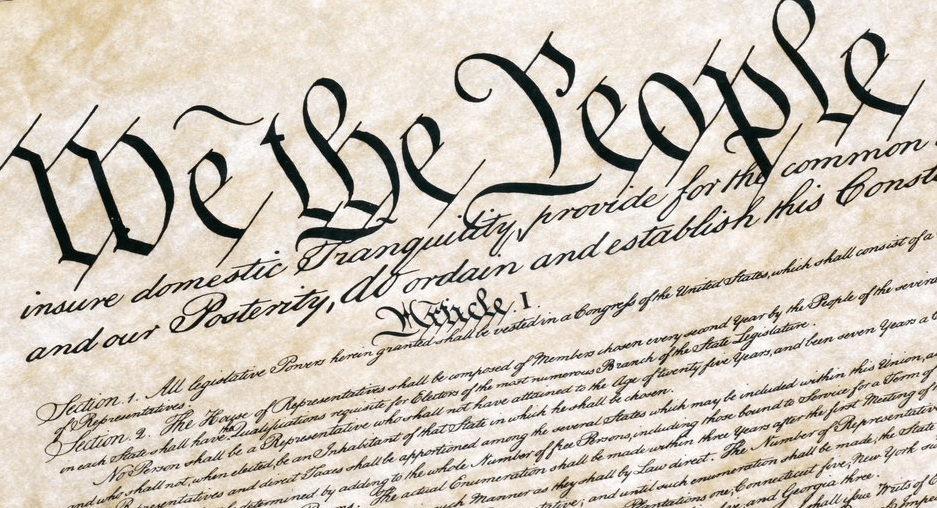 We the People
insure domestic Tranquility, provide for the common
and our Posterity, do ordain and establish this Const
Article. I.
Section. 1. All legislative Powers herein granted shall be vested in a Congreſs of the United States, which shall consist of a
of Representatives.
Section. 2. The House of Representatives shall be composed of Members chosen every second Year by the People of the several
in each State shall have the Qualifications requisite for Electors of the most numerous Branch of the State Legislature.
No Person shall be a Representative who shall not have attained to the Age of twenty five Years, and been seven Years a C
and who shall not, when elected, be an Inhabitant of that State in which he shall be chosen.
Representatives and direct Taxes shall be apportioned among the several States which may be included within this Union, a
determined by adding to the whole Number of free Persons, including those bound to Service for a Term of
The actual Enumeration shall be made within three Years after the first Meeting of
such Manner as they shall by Law direct. The Number of Representatives
and until such enumeration shall be made, the State
Plantations one, Connecticut five, New York
five, and Georgia three.
shall iſsue Writs of